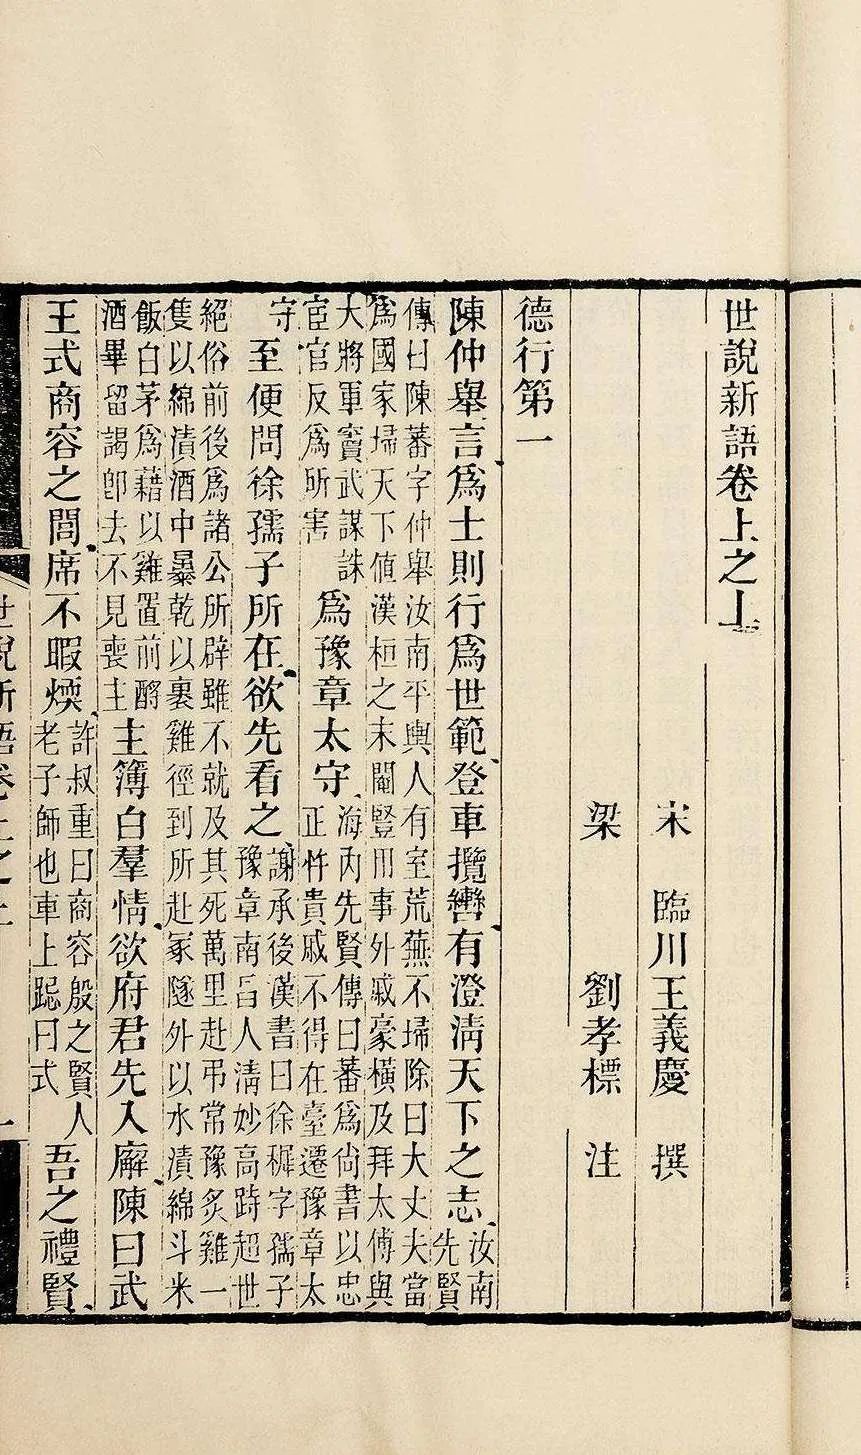 世說新語卷上之上
宋 臨川王義慶 撰
梁 劉孝標 注
德行第一
陳仲舉言爲士則行爲世範登車攬轡有澄清天下之志
汝南
先賢
傳曰陳蕃字仲舉汝南平輿人有室荒蕪不埽除曰大丈夫當
爲國家埽天下値漢桓之末閹豎用事外戚豪橫及拜太傅與
大將軍竇武謀誅
宦官反爲所害
爲豫章太守
海內先賢傳曰蕃爲尙書以忠
正忤貴戚不得在臺遷豫章太
守
至便問徐孺子所在欲先看之
謝承後漢書曰徐穉字孺子
豫章南昌人淸妙高跱超世
絕俗前後爲諸公所辟雖不就及其死萬里赴弔常豫炙雞一
隻以綿漬酒中暴乾以裹雞徑到所赴冢隧外以水漬綿斗米
飯白茅爲藉以雞置前酹
酒畢留謁卽去不見喪主
主簿白羣情欲府君先入廨陳曰武
王式商容之閭席不暇煗
許叔重曰商容殷之賢人
老子師也車上跽曰式
吾之禮賢
世說新語卷上之上
一